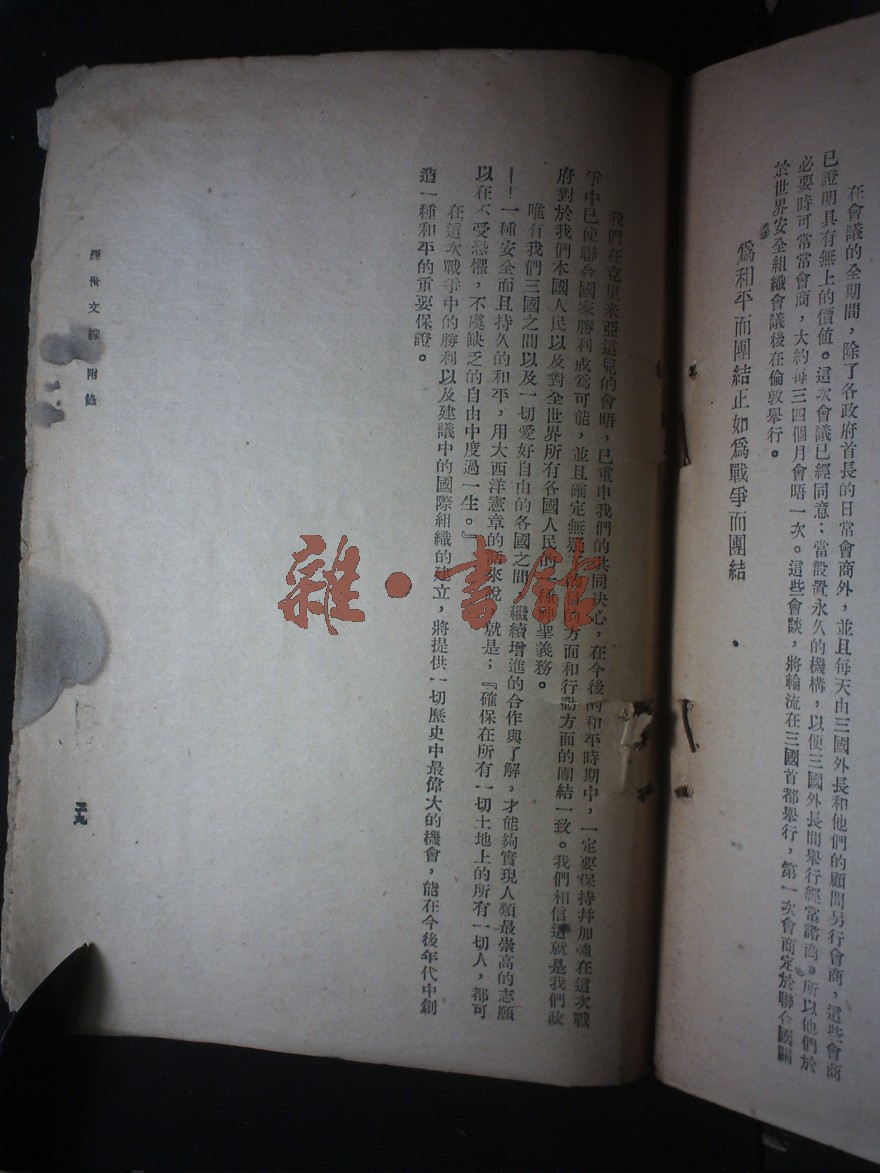 在會議的全期間，除了各政府首長的日常會商外，並且每天由三國外長和他們的顧問另行會商，這些會商
已證明具有無上的價值。這次會議已經同意：當設置永久的機構，以便三國外長間舉行經常諮商。所以他們於
必要時可常常會商，大約每三四個月會晤一次。這些會談，將輪流在三國首都舉行，第一次會商定於聯合國關
於世界安全組織會議後在倫敦舉行。
爲和平而團結正如爲戰爭而團結
我們在克里米亞這兒的會晤，已重申我們的共同決心，在今後的和平時期中，一定要保持幷加強在這次戰
爭中已使聯合國家勝利成爲可能，並且確定無疑方面和行動方面的團結一致。我們相信這就是我們政
府對於我們本國人民以及對全世界所有各國人民的聖義務。
唯有我們三國之間以及一切愛好自由的各國之間繼續增進的合作與了解，才能夠實現人類最崇高的志願
——一種安全而且持久的和平，用大西洋憲章的來說就是；『確保在所有一切土地上的所有一切人，都可
以在不受恐懼，不虞缺乏的自由中度過一生。』
在這次戰爭中的勝利以及建議中的國際組織的建立，將提供一切歷史中最偉大的機會，能在今後年代中創
造一種和平的重要保證。
經世文綜 附錄
雜·書館